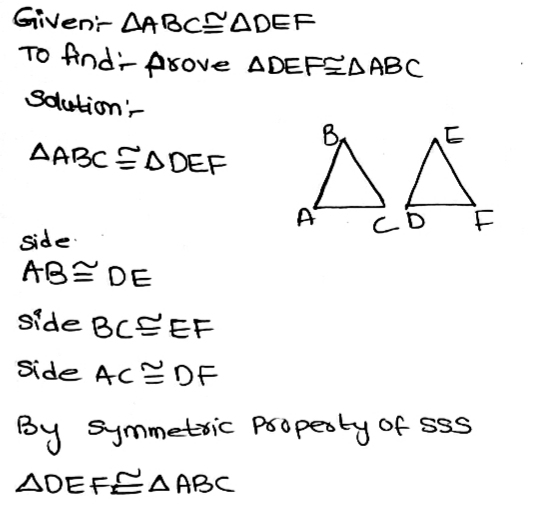 Given:- △ABC≅△DEF
To find:- prove △DEF≅△ABC
Solution:-
△ABC≅△DEF
B
E
A
C
D
F
side.
AB≅DE
side BC≅EF
side AC≅DF
By symmetric property of SSS
△DEF≅△ABC